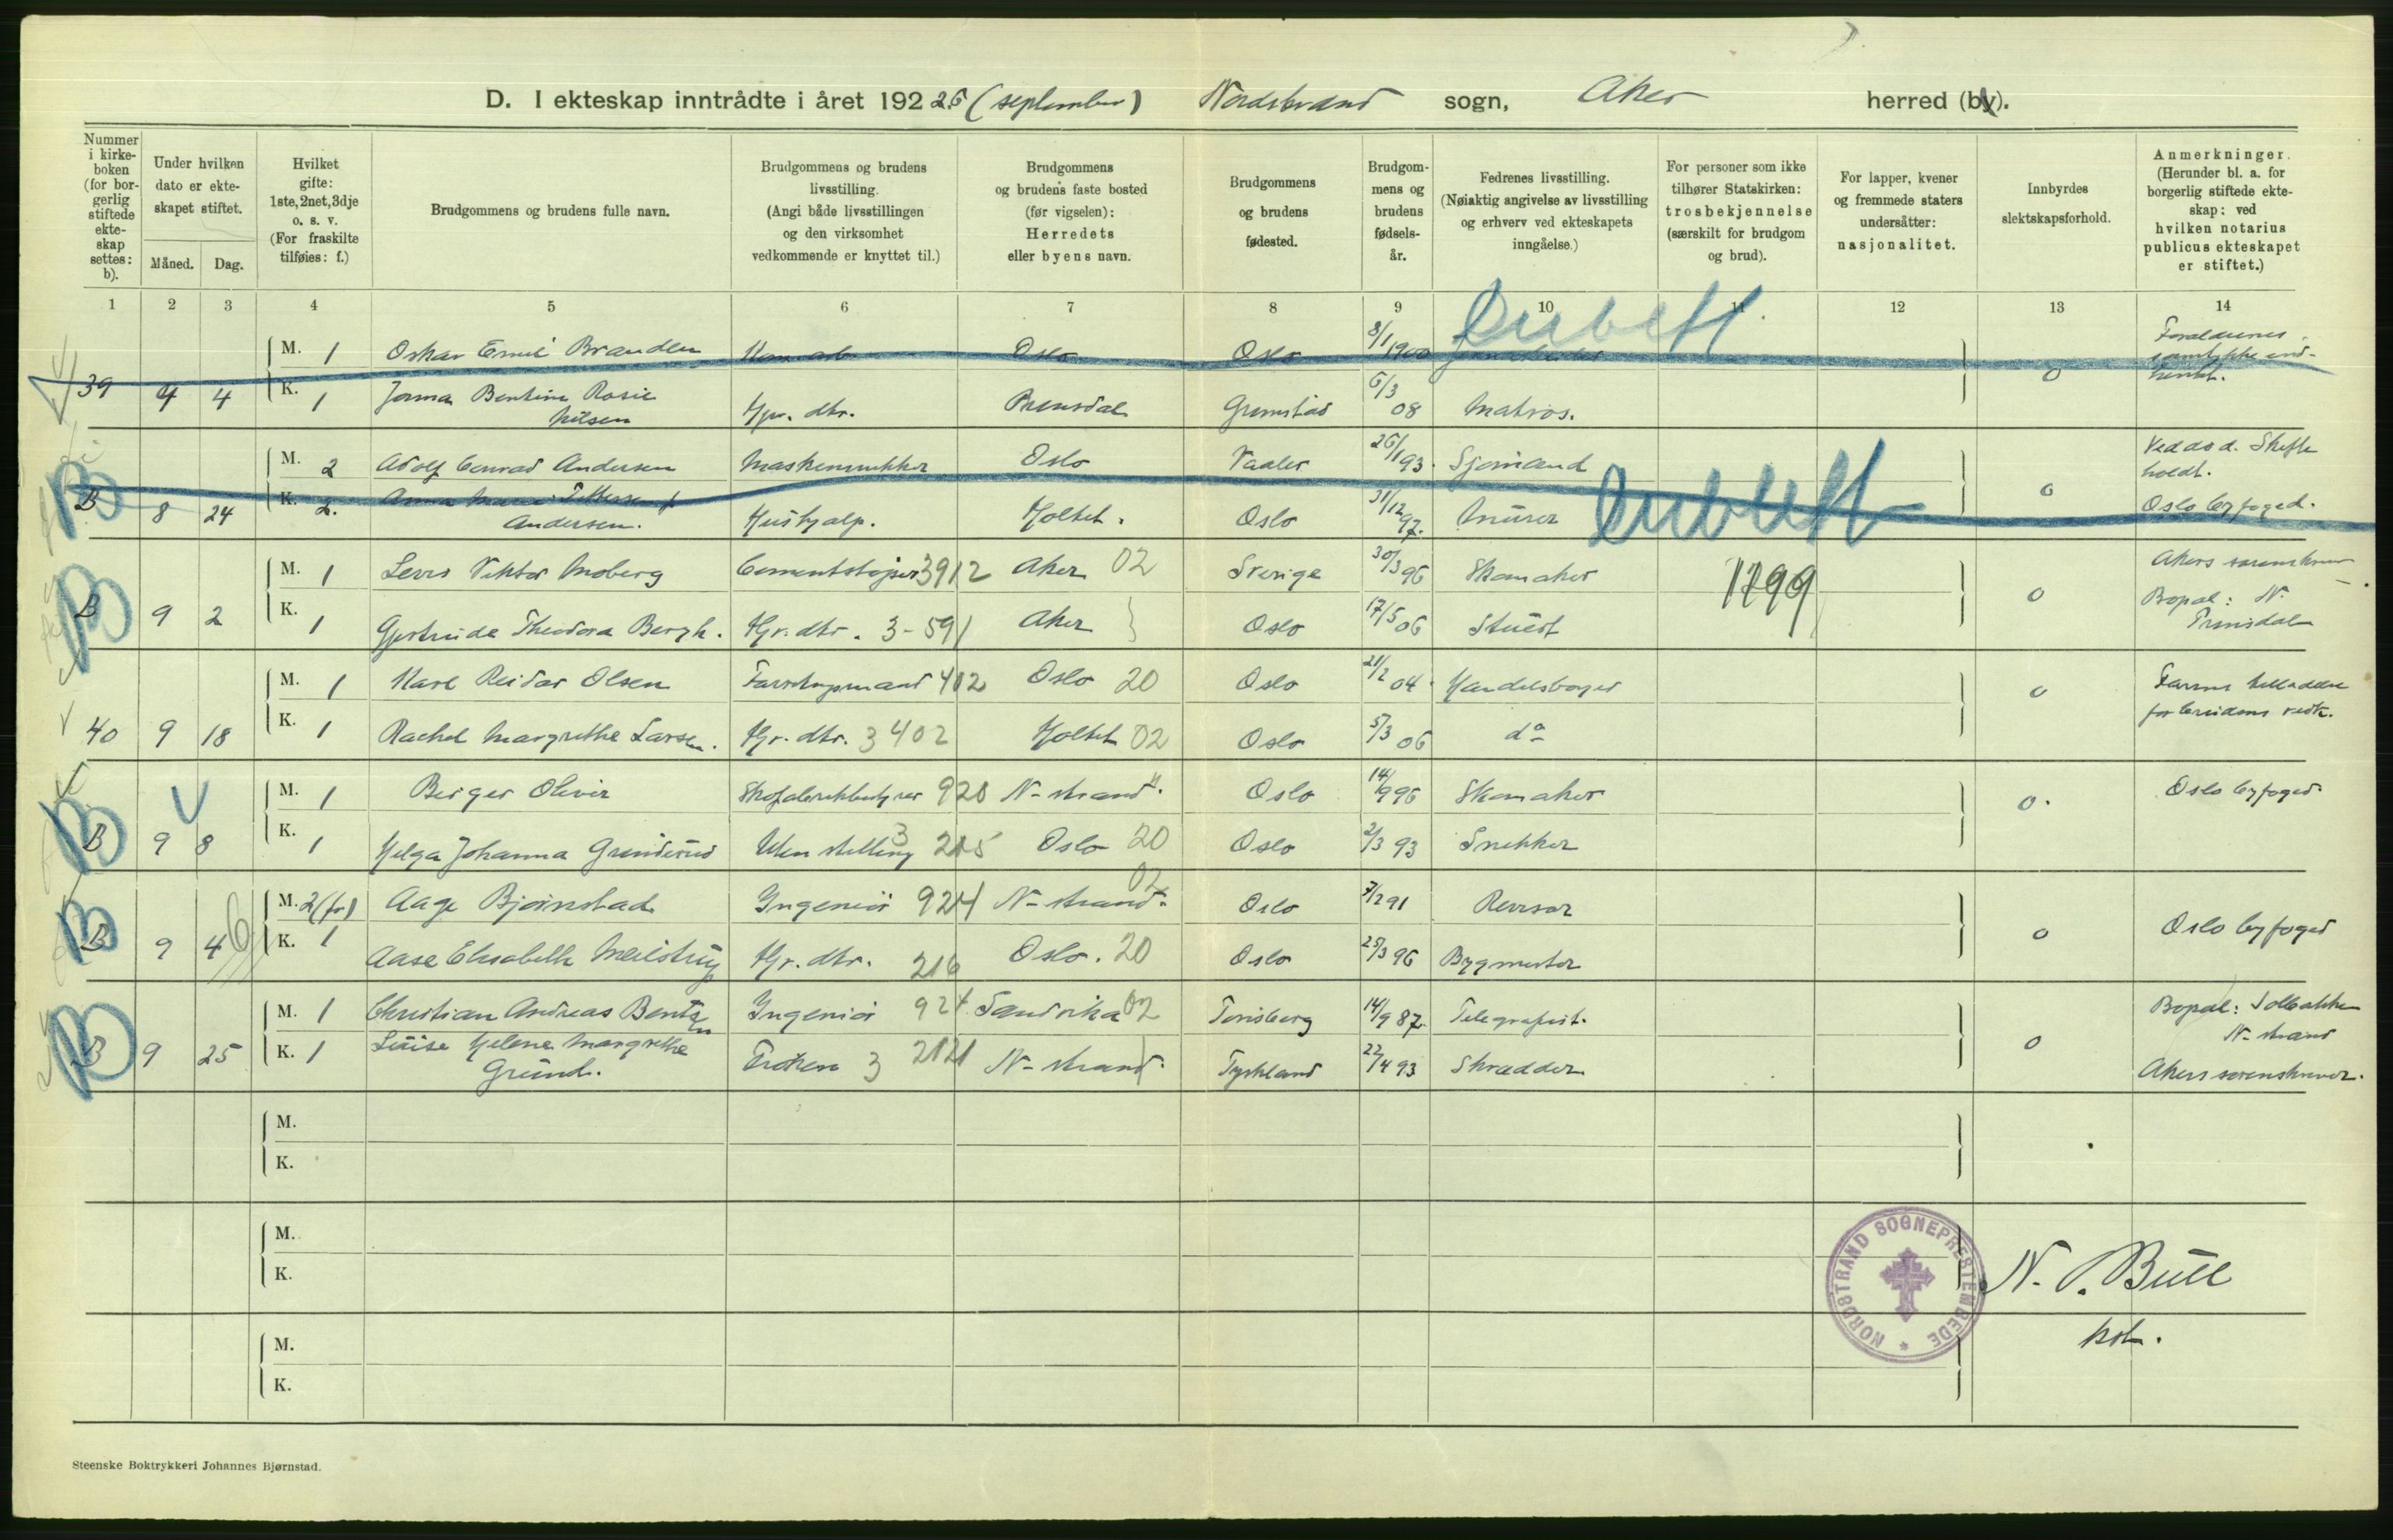 D. I ekteskap inntrådte i året 1926 (september) Nordstrand sogn, Aker herred (by).
Nummer i kirkeboken (for borgerlig stiftede ekteskap settes: b).
Under hvilken dato er ekteskapet stiftet.
Måned. Dag.
Hvilket gifte: 1ste, 2net, 3dje o. s. v. (For fraskilte tilføies: f.)
Brudgommens og brudens fulle navn.
Brudgommens og brudens livsstilling. (Angi både livsstillingen og den virksomhet vedkommende er knyttet til.)
Brudgommens og brudens faste bosted (før vigselen): Herredets eller byens navn.
Brudgommens og brudens fødested.
Brudgommens og brudens fødselsår.
Fedrenes livsstilling. (Nøiaktig angivelse av livsstilling og erhverv ved ekteskapets inngåelse.)
For personer som ikke tilhører Statskirken: trosbekjennelse (særskilt for brudgom og brud).
For lapper, kvener og fremmede staters undersåtter: nasjonalitet.
Innbyrdes slektskapsforhold.
Anmerkninger. (Herunder bl. a. for borgerlig stiftede ekteskap: ved hvilken notarius publicus ekteskapet er stiftet.)
1 2 3 4 5 6 7 8 9 10 11 12 13 14
Dublett
M. 1 Oskar Emil Oslo Oslo 8/1 1900 Forældrenes
39 4 4 K. 1 Bentine Rosie Nilsen Hjv. dtr. Grimstad 6/3 08 Matros. 0
M. 2 Adolf Conrad Andersen Maskinsnekker Oslo Vaaler 26/1 93. Sjømand Ved død. Skifte holdt.
B 8 24 K. 2. Anna Marie Pettersen f Andersen. Hushjælp. Holtet. Oslo 31/12 97. Murer Dublett 0 Oslo byfoged.
M. 1 Viktor Moberg Cementstøper 3912 Aker 02 Sverige 30/3 96 Skomaker 1799
B 9 2 K. 1 Gjertrude Theodora Bergh. Hjv. dtr. 3-591 Aker Oslo 17/5 06 Stuert 0 Bopæl: N.
M. 1 Karl Reidar Olsen 402 Oslo 20 Oslo 21/2 04. 0
40 9 18 K. 1 Rachel Margrethe Larsen. Hjv. dtr. 3 402 Holtet 02 Oslo 5/3 06 do
M. 1 Birger Olivir 920 N-strand. Oslo 14/9 96 Skomaker 0. Oslo byfoged.
B 9 8 K. 1 Helga Johanna Grinderud Uten stilling 3 215 Oslo 20 Oslo 2/3 93 Snekker
M. 2(fr) Aage Bjørnstad Ingeniør 924 N-strand. 02 Oslo 7/2 91 Revisor
B 9 4 6 K. 1 Aase Elisabeth Meilstrup Hjv. dtr. 216 Oslo. 20 Oslo 25/3 96 Bygmester 0 Oslo byfoged
M. 1 Christian Andreas Bentzen Ingeniør 924 Sandvika 02 Tønsberg 14/9 87. Telegrafist. Bopæl: Solbakken N-strand
B 9 25 K. 1 Luise Helene Margrethe Grund. Frøken 3 2121 N-strand. Tyskland 22/4 93 Skrædder 0 Akers sorenskriver.
M.
K.
M.
K.
NORDSTRAND SOGNEPRESTEMBEDE
N. Bull
M.
K.
Steenske Boktrykkeri Johannes Bjørnstad.